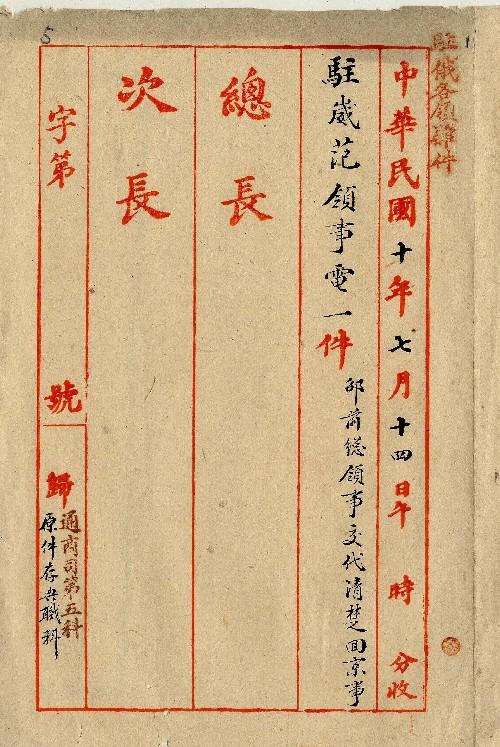 駐俄各領雜件
中華民國十年七月十四日午 時 分收
駐崴范領事電一件 邵前總領事交代清楚回京事
總長
次長
字第 號
歸通商司第五科
原件存典職科
5